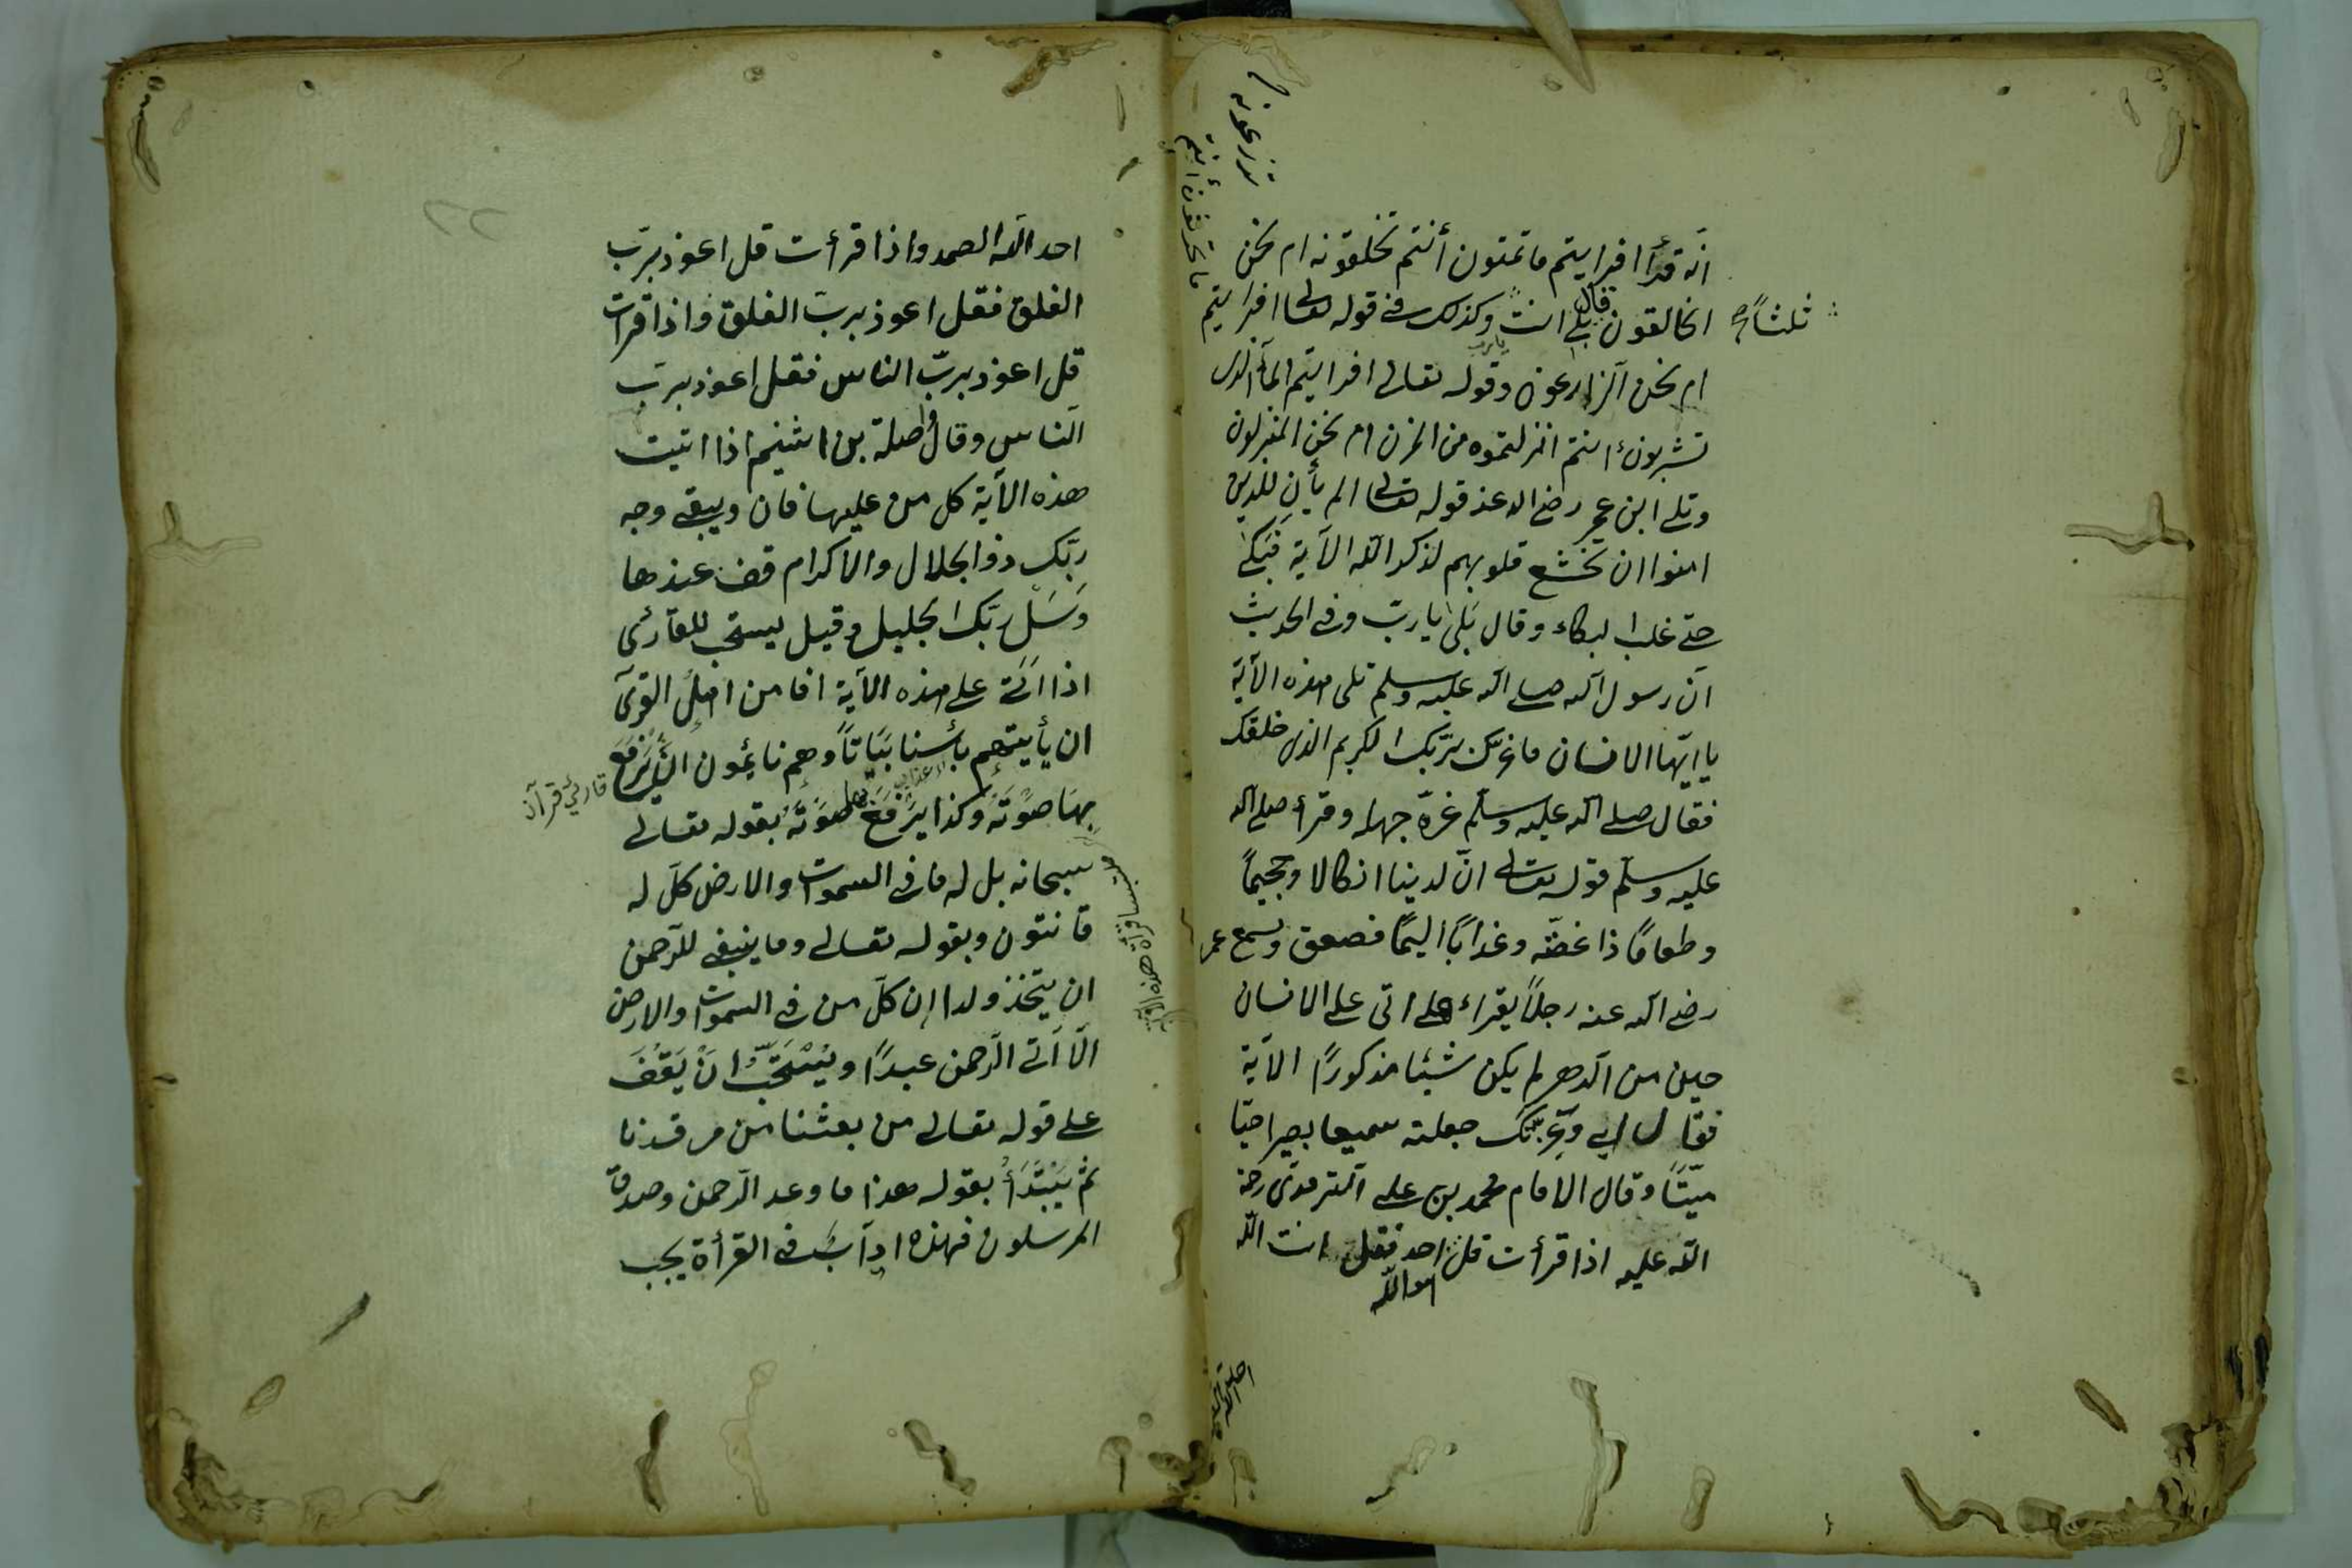 انّه قرأ افرايتم ما تمنون أنتم تخلقونه ام نحن
الخالقون قال بلى انت يا رب وكذلك في قوله تعالى افرايتم
ثلثاً
ما تحرثون أنتم
تزرعونه
ام نحن الزارعون وقوله تعالى افرايتم المآء الذى
تشربون ءانتم انزلتموه من المزن ام نحن المنزلون
وتلى ابن عمر رضى الله عنه قوله تعالى الم يأنِ للذين
امنوا ان تخشع قلوبهم لذكر الله الآية فبكى
حتى غلب البكاء وقال بَلى يا ربّ وفى الحديث
انّ رسول الله صلى الله عليه وسلم تلى هذه الآية
يا ايّها الانسان ما غرّك بربّك الكريم الذى خلقك
فقال صلى الله عليه وسلّم غرّه جهله وقرأ صلى الله
عليه وسلّم قوله تعالى انّ لدينا انكالا وجحيماً
وطعامًا ذا غصّة وعذابًا اليمًا فصعق وسمع عمر
رضى الله عنه رجلاً يقراء هل اتى على الانسان
حين من الدّهر لم يكن شيئا مذكورًا الآية
فقال اى وعزّتك جعلته سميعا بصيرا حيّا
ميّتًا وقال الامام محمد بن على الترمذى رحمة
الله عليه اذا قرأت قل هو الله احد فقل انت الله
احد الله الصمد واذا قرأت قل اعوذ بربّ
الفلق فقل اعوذ بربّ الفلق واذا قرات
قل اعوذ بربّ الناس فقل اعوذ بربّ
النّاس وقال صلة بن اشيم اذا اتيت
هذه الآية كل من عليها فان ويبقى وجه
ربّك ذو الجلال والاكرام قف عندها
وَسَلْ ربّك الجليل وقيل يستحب للقارئ
اذا اتى على هذه الآية افامن اهلُ القرىٓ
ان يأتيهم بأسنا بَيَاتاً وهم نائمون ان يَرْفَعَ
قارئ قرآن
بهَا صَوْتَهُ وكذا يَرْفَعُ صَوْتَهُ بقوله تعالى
سبحانه بل له ما فى السموات والارض كلّ له
قانتون وبقوله تعالى وما ينبغى للرّحمن
ان يتخذ ولدا إن كلّ من فى السموات والارض
الّا اٰتى الرّحمن عبدًا ويُسْتَحَبّ انْ يَقِفَ
على قوله تعالى من بعثنا من مرقدنا
ثم يَبْتَدَأُ بقوله هذا ما وعد الرّحمن وصدق
المرسلون فهذه ادآبٌ فى القرأة يجب